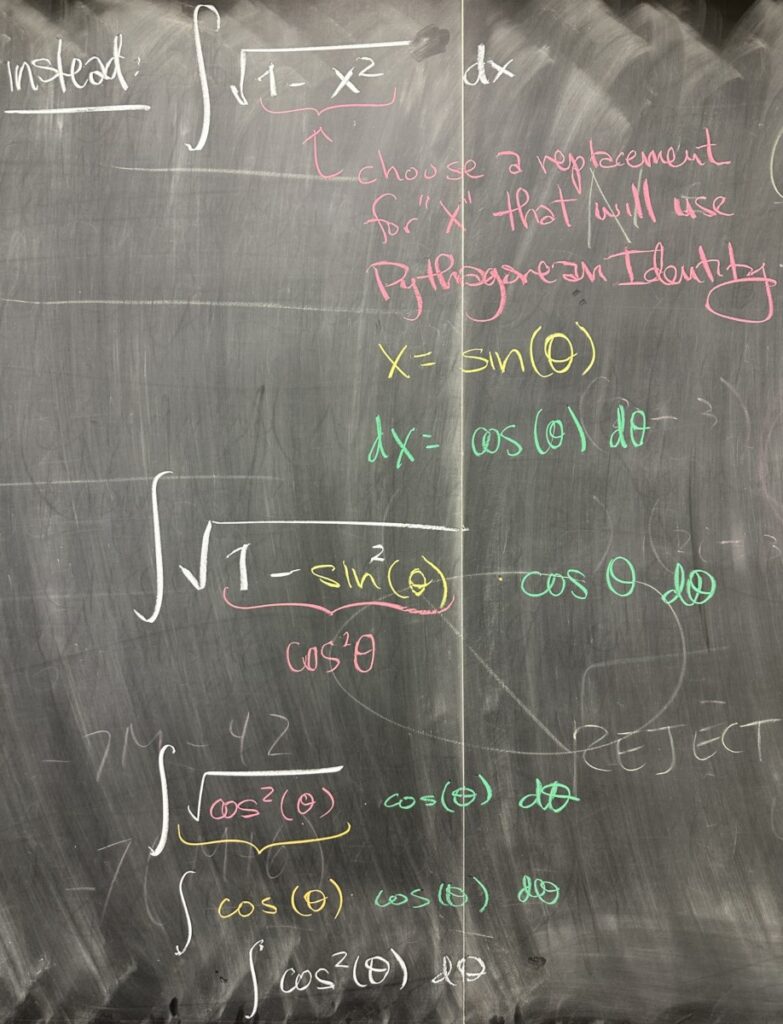 instead: ∫ √(1 - x²) dx
↑ choose a replacement
for "x" that will use
Pythagorean Identity
x = sin(θ)
dx = cos(θ) dθ
∫ √(1 - sin²(θ)) · cos θ dθ
cos²θ
-7M - 42
REJECT
∫ √(cos²(θ)) · cos(θ) dθ
∫ cos(θ) · cos(θ) dθ
∫ cos²(θ) dθ